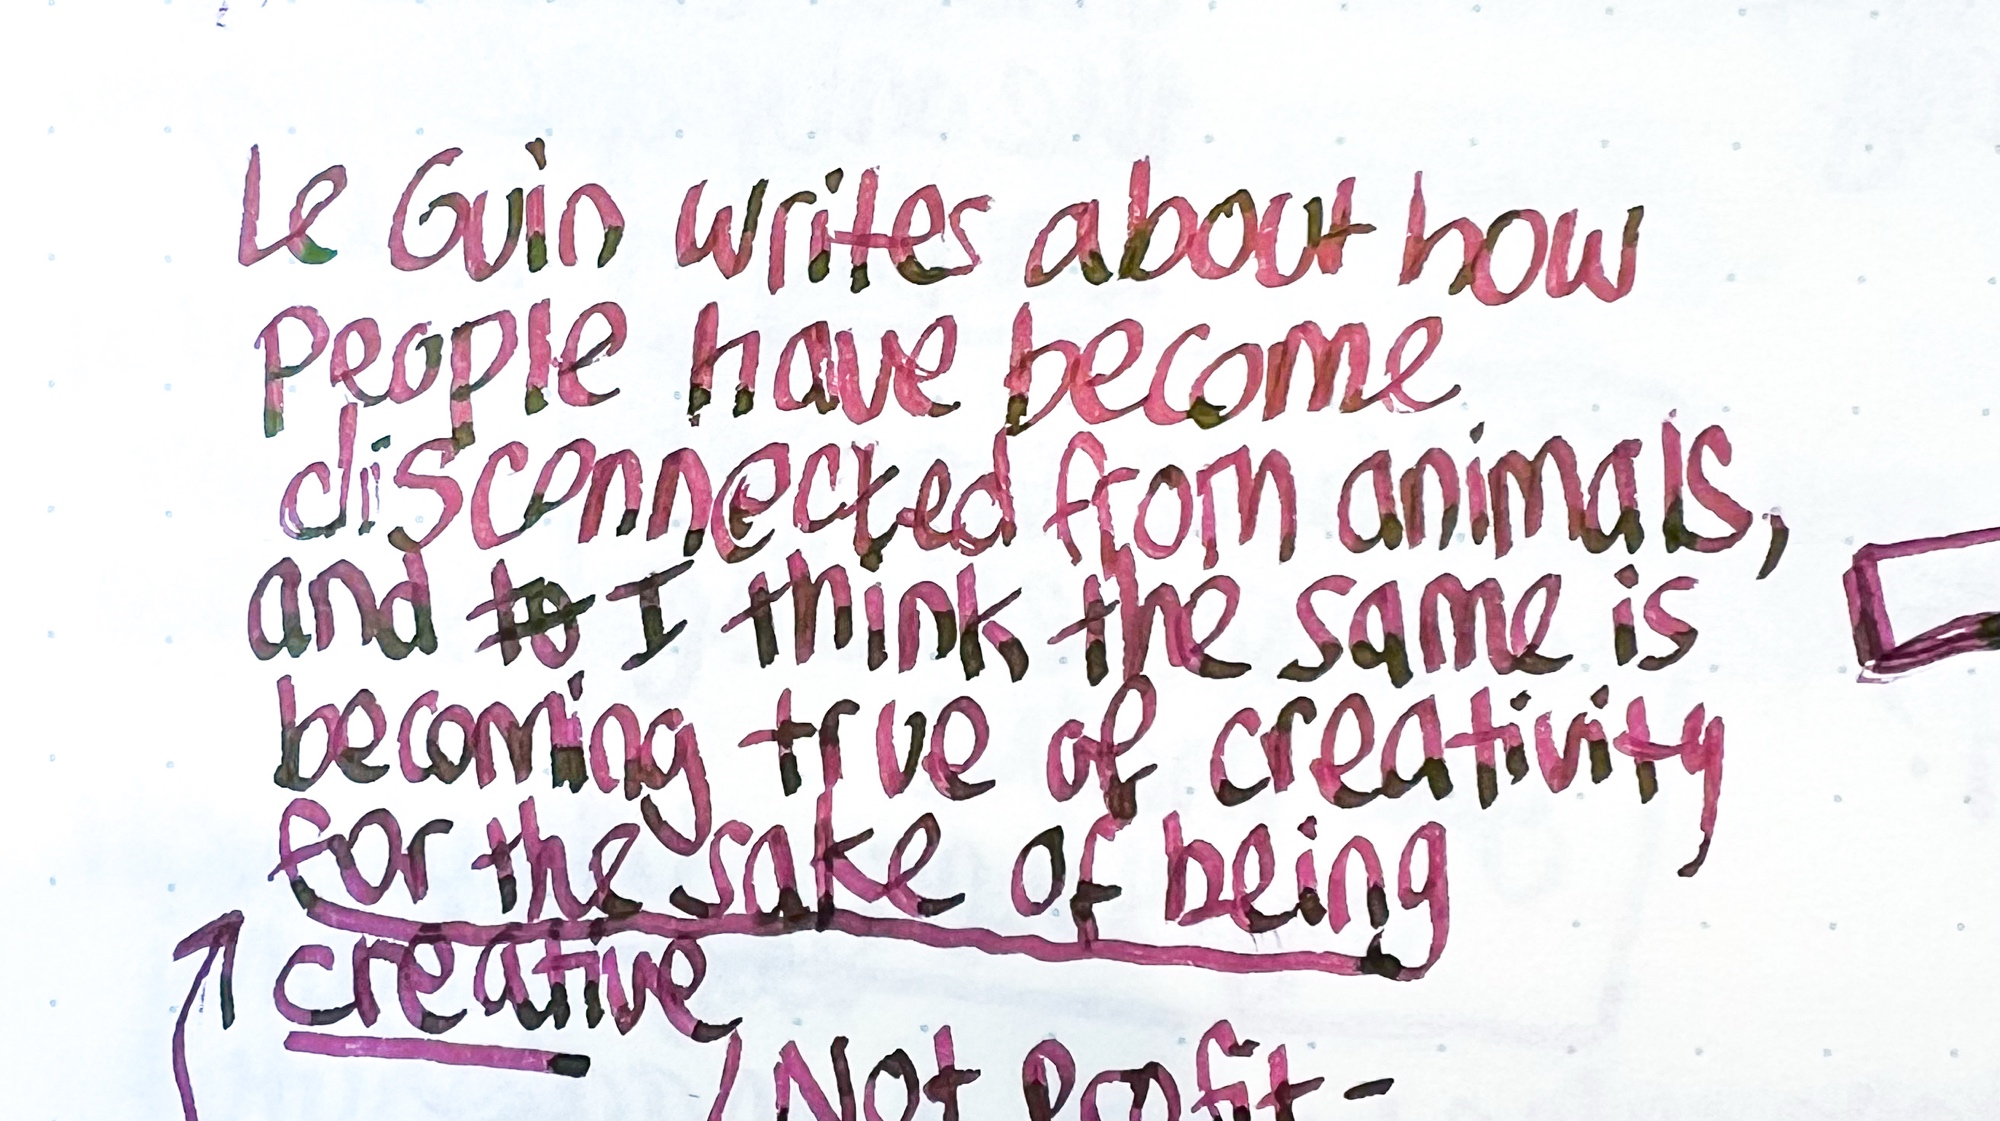 Le Guin writes about how
people have become
disconnected from animals,
and to I think the same is
becoming true of creativity
for the sake of being
creative
Not profit-